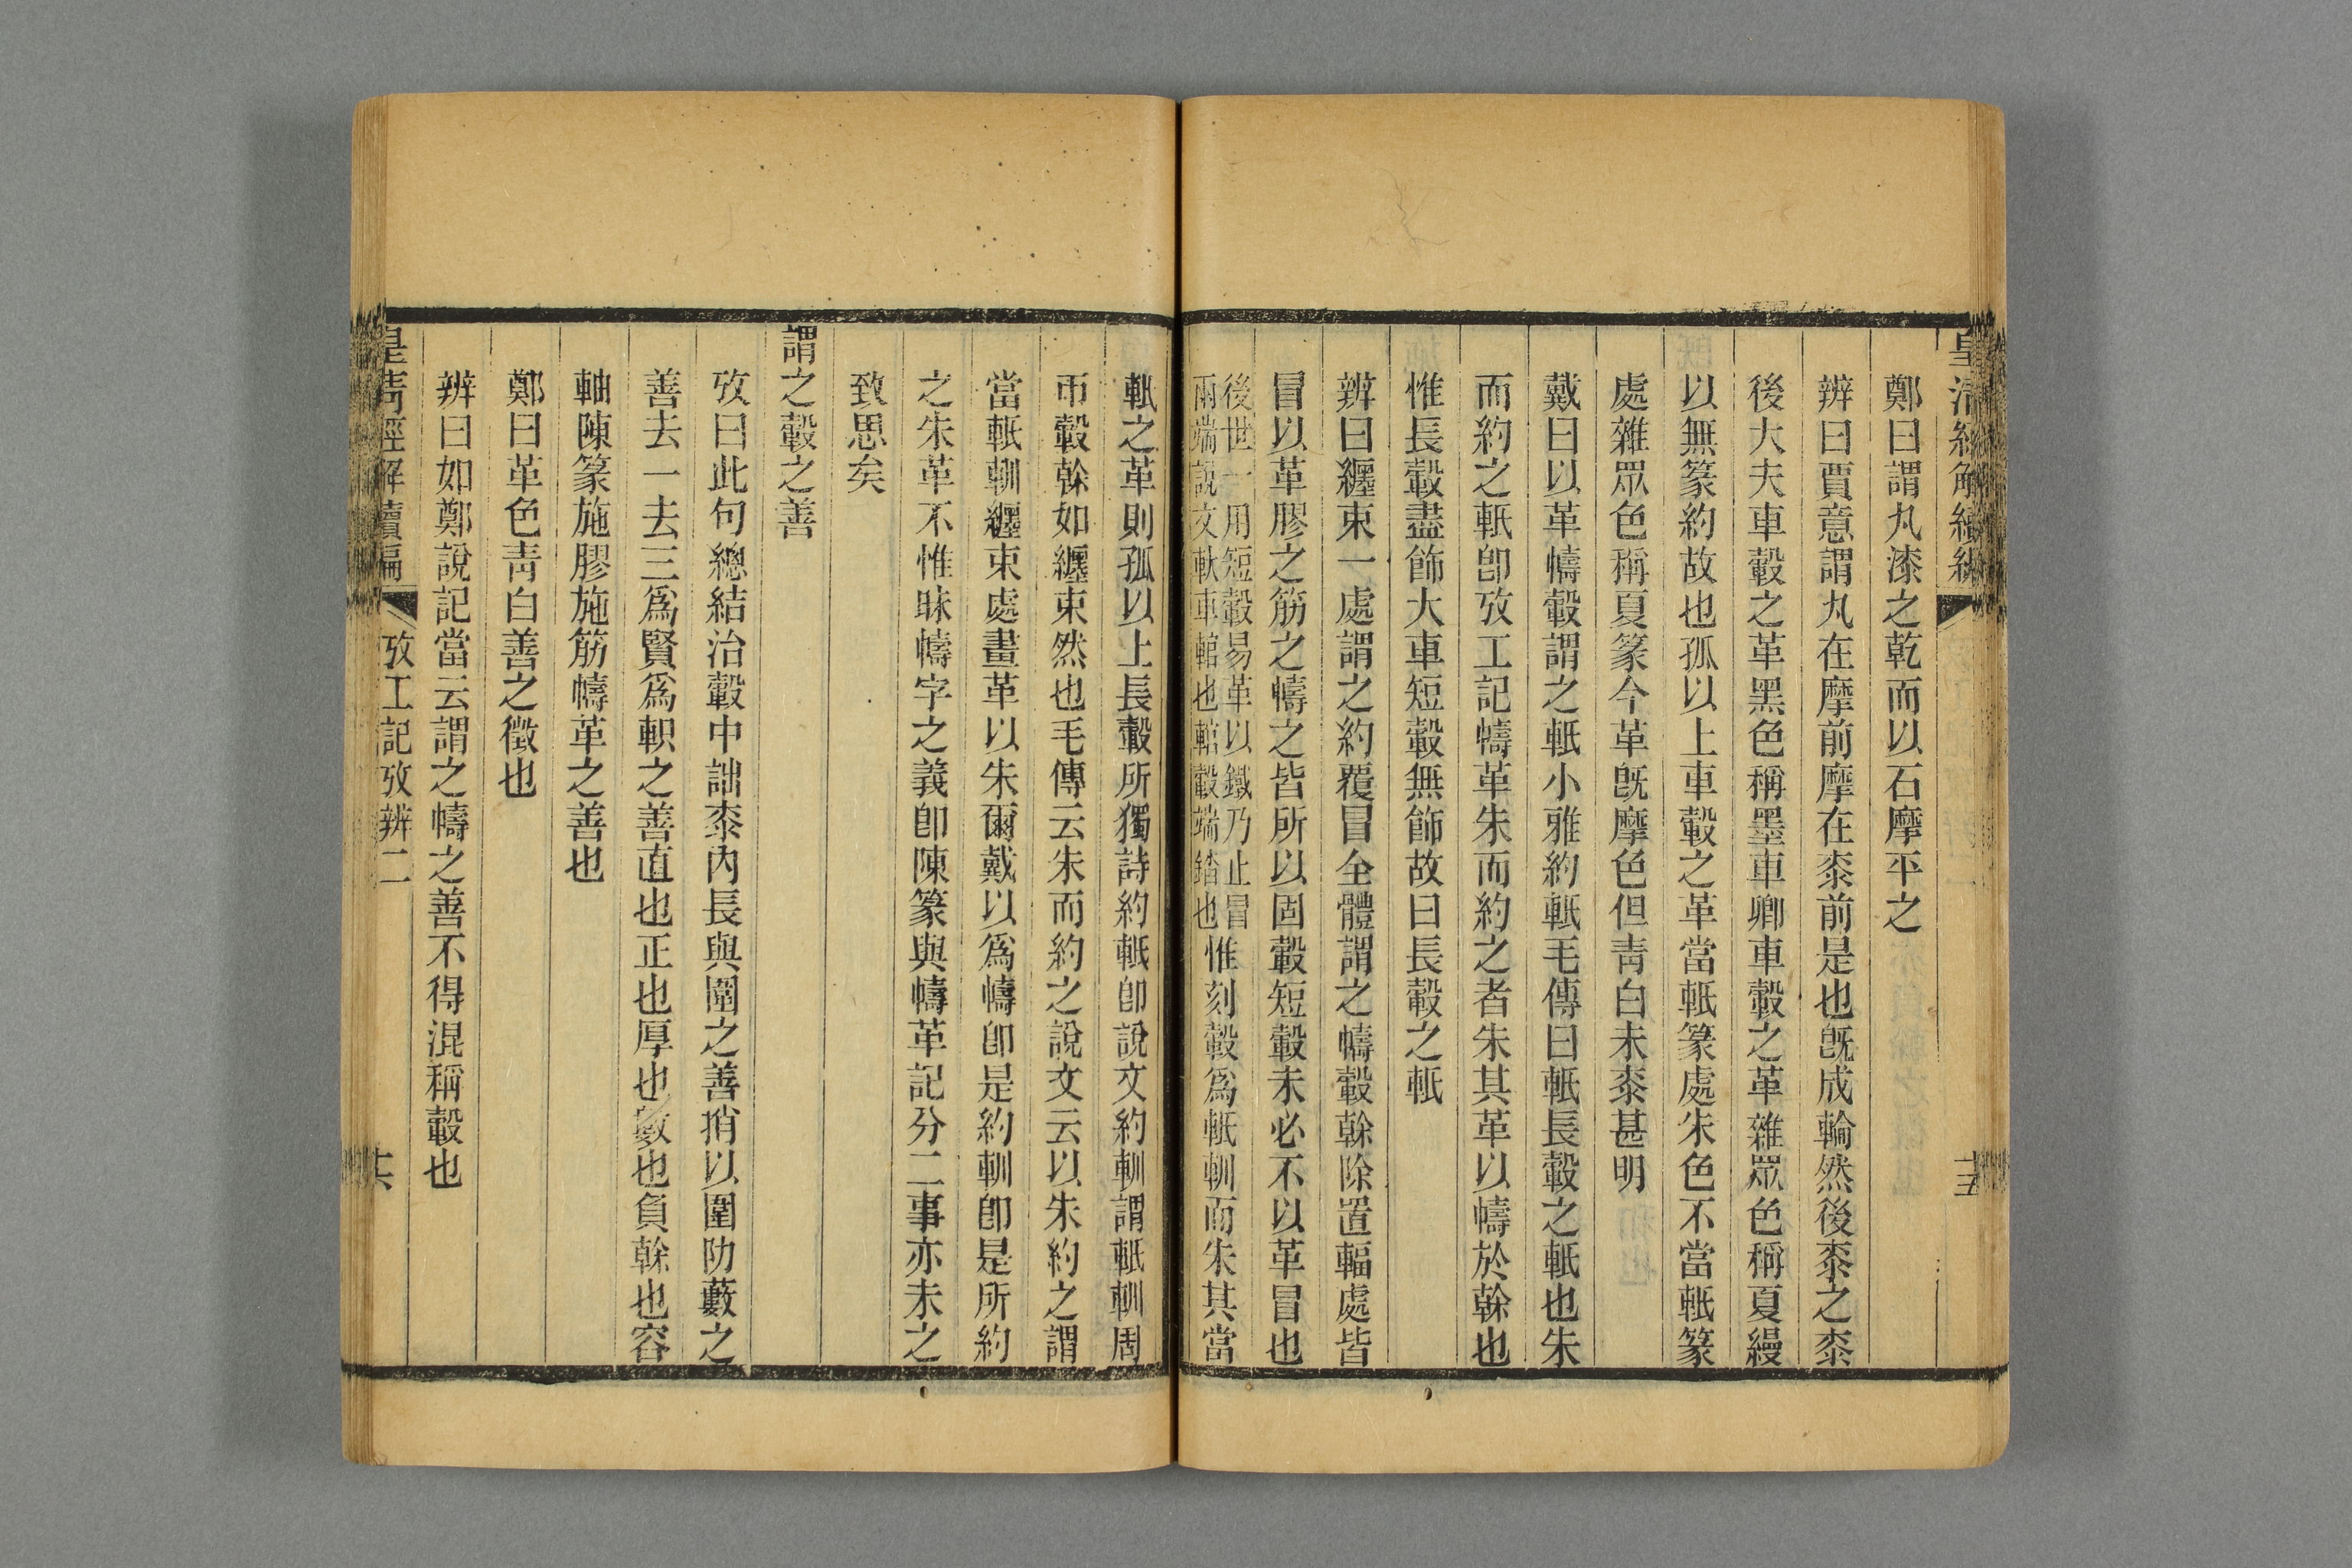 鄭曰謂丸漆之乾而以石摩平之
辨曰賈意謂丸在摩前摩在桼前是也旣成輪然後桼之桼
後大夫車轂之革黑色稱墨車卿車轂之革雜眾色稱夏縵
以無篆約故也孤以上車轂之革當軝篆處朱色不當軝篆
處雜眾色稱夏篆今革旣摩色但靑白未桼甚明
戴曰以革幬轂謂之軝小雅約軝毛傳曰軝長轂之軝也朱
而約之軝卽攷工記幬革朱而約之者朱其革以幬於榦也
惟長轂盡飾大車短轂無飾故曰長轂之軝
辨曰纏束一處謂之約覆冒全體謂之幬轂榦除置輻處皆
冒以革膠之筋之幬之皆所以固轂短轂未必不以革冒也
後世一用短轂易革以鐵乃止冒
兩端說文軑車輨也輨轂端錔也
惟刻轂爲軝軥而朱其當
軝之革則孤以上長轂所獨詩約軝卽說文約軥謂軝軥周
帀轂榦如纏束然也毛傳云朱而約之說文云以朱約之謂
當軝軥纏束處畫革以朱爾戴以爲幬卽是約軥卽是所約
之朱革不惟昧幬字之義卽陳篆與幬革記分二事亦未之
致思矣
謂之轂之善
攷曰此句總結治轂中詘桼內長與圍之善捎以圍阞藪之
善去一去三爲賢爲軹之善直也正也厚也數也負榦也容
軸陳篆施膠施筋幬革之善也
鄭曰革色靑白善之徵也
辨曰如鄭說記當云謂之幬之善不得混稱轂也
皇淸經解續編
攷工記攷辨二